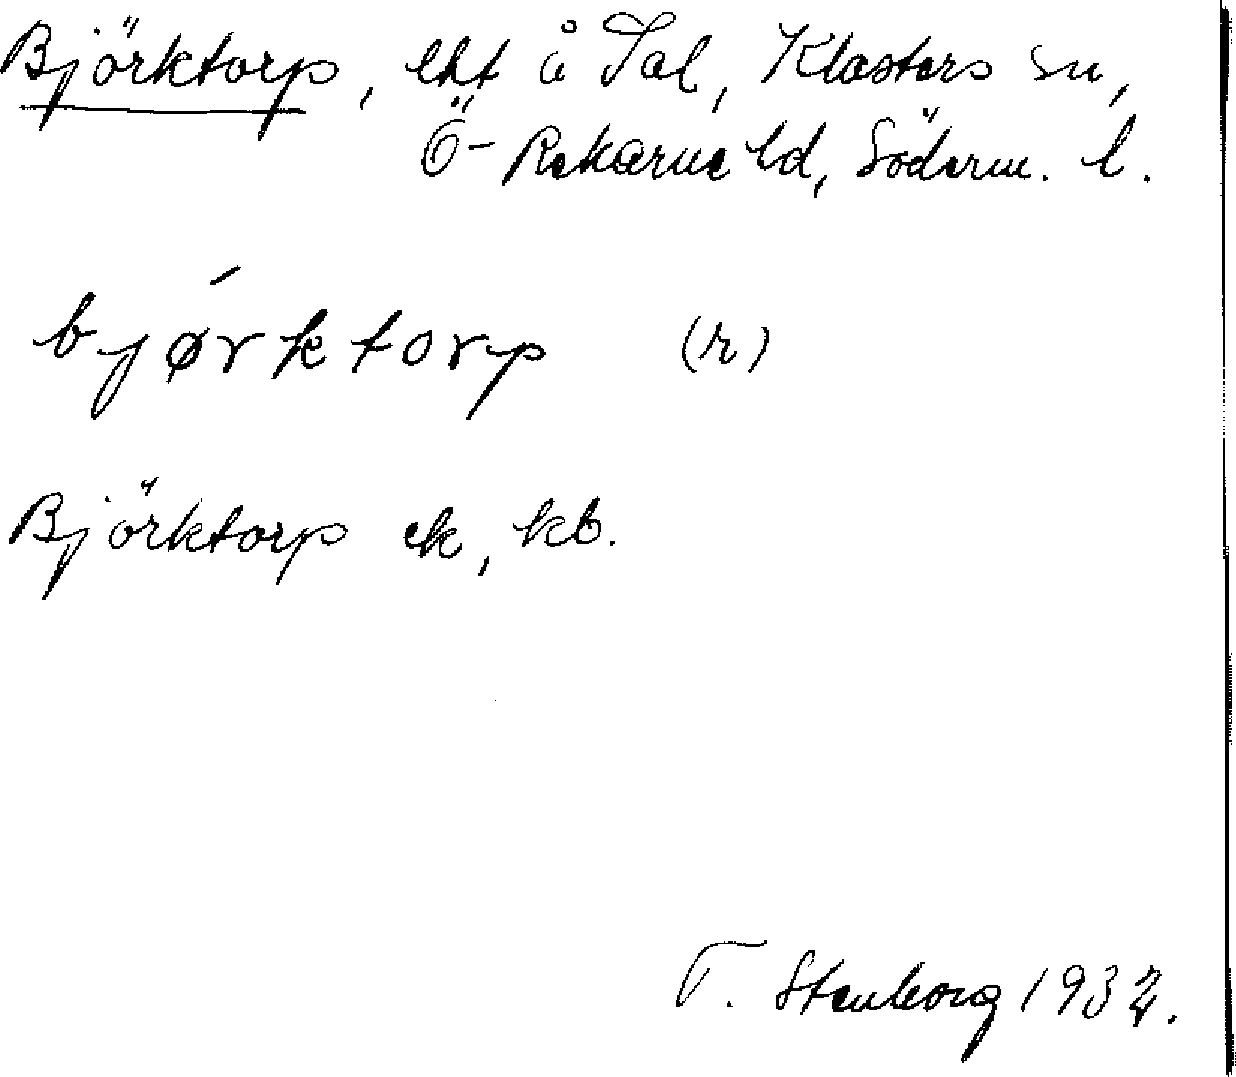 Björktorp, lht å Sal, Klosters sn,
Ö-Rekarne hd, Söderm. l.
bjǿrktorp (r)
Björktorp ek, kb.
T. Stenborg